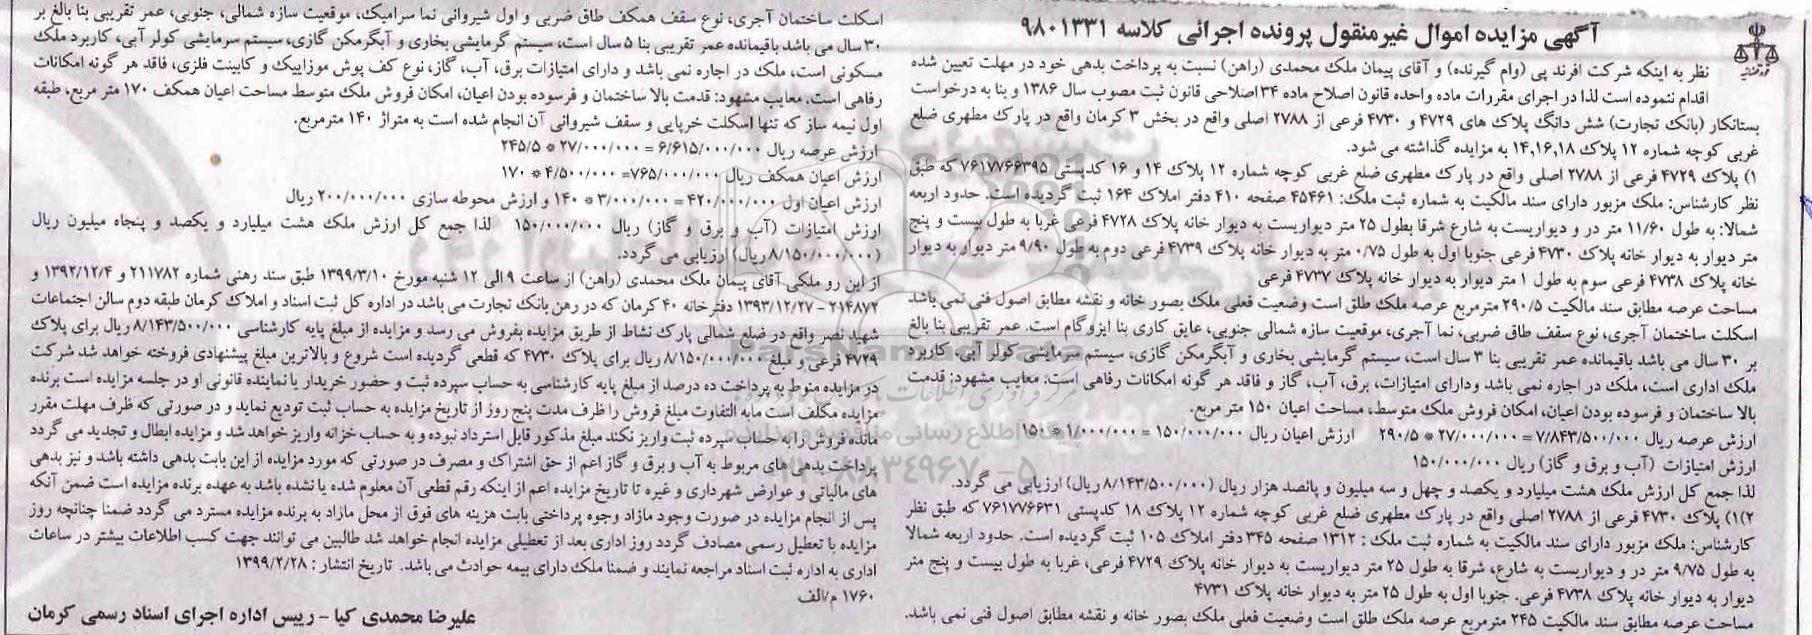 آگهی مزایده اموال غیرمنقول پرونده اجرائی کلاسه ۹۸۰۱۳۳۱
نظر به اینکه شرکت افرند پی (وام گیرنده) و آقای پیمان ملک محمدی (راهن) نسبت به پرداخت بدهی خود در مهلت تعیین شده
اقدام ننموده است لذا در اجرای مقررات ماده واحده قانون اصلاح ماده ۳۴ اصلاحی قانون ثبت مصوب سال ۱۳۸۶ و بنا به درخواست
بستانکار (بانک تجارت) شش دانگ پلاک های ۴۷۲۹ و ۴۷۳۰ فرعی از ۲۷۸۸ اصلی واقع در بخش ۳ کرمان واقع در پارک مطهری ضلع
غربی کوچه شماره ۱۲ پلاک ۱۴,۱۶,۱۸ به مزایده گذاشته می شود.
۱) پلاک ۴۷۲۹ فرعی از ۲۷۸۸ اصلی واقع در پارک مطهری ضلع غربی کوچه شماره ۱۲ پلاک ۱۴ و ۱۶ کدپستی ۷۶۱۷۷۶۶۳۹۵ که طبق
نظر کارشناس: ملک مزبور دارای سند مالکیت به شماره ثبت ملک: ۴۵۴۶۱ صفحه ۴۱۰ دفتر املاک ۱۶۴ ثبت گردیده است. حدود اربعه
شمالا: به طول ۱۱/۶۰ متر در و دیواریست به شارع شرقا بطول ۲۵ متر دیواریست به دیوار خانه پلاک ۴۷۲۸ فرعی غربا به طول بیست و پنج
متر دیوار به دیوار خانه پلاک ۴۷۳۰ فرعی جنوبا اول به طول ۰/۷۵ متر به دیوار خانه پلاک ۴۷۳۹ فرعی دوم به طول ۹/۹۰ متر دیوار به دیوار
خانه پلاک ۴۷۳۸ فرعی سوم به طول ۱ متر دیوار به دیوار خانه پلاک ۴۷۳۷ فرعی
مساحت عرصه مطابق سند مالکیت ۲۹۰/۵ مترمربع عرصه ملک طلق است وضعیت فعلی ملک بصور خانه و نقشه مطابق اصول فنی نمی باشد
اسکلت ساختمان آجری، نوع سقف طاق ضربی، نما آجری، موقعیت سازه شمالی جنوبی، عایق کاری بنا ایزوگام است. عمر تقریبی بنا بالغ
بر ۳۰ سال می باشد باقیمانده عمر تقریبی بنا ۳ سال است، سیستم گرمایشی بخاری و آبگرمکن گازی، سیستم سرمایشی کولر آبی. کاربرد
ملک اداری است، ملک در اجاره نمی باشد ودارای امتیازات، برق، آب، گاز و فاقد هر گونه امکانات رفاهی است. معایب مشهود: قدمت
بالا ساختمان و فرسوده بودن اعیان، امکان فروش ملک متوسط، مساحت اعیان ۱۵۰ متر مربع.
ارزش عرصه ریال ۷/۸۴۳/۵۰۰/۰۰۰ = ۲۷/۰۰۰/۰۰۰ * ۲۹۰/۵ ارزش اعیان ریال ۱۵۰/۰۰۰/۰۰۰ = ۱/۰۰۰/۰۰۰ * ۱۵۰
ارزش امتیازات (آب و برق و گاز) ریال ۱۵۰/۰۰۰/۰۰۰
لذا جمع کل ارزش ملک هشت میلیارد و یکصد و چهل و سه میلیون و پانصد هزار ریال (۸/۱۴۳/۵۰۰/۰۰۰ ریال) ارزیابی می گردد.
۱(۲) پلاک ۴۷۳۰ فرعی از ۲۷۸۸ اصلی واقع در پارک مطهری ضلع غربی کوچه شماره ۱۲ پلاک ۱۸ کدپستی ۷۶۱۷۷۶۶۳۱ که طبق نظر
کارشناس: ملک مزبور دارای سند مالکیت به شماره ثبت ملک : ۱۳۱۲ صفحه ۳۴۵ دفتر املاک ۱۰۵ ثبت گردیده است. حدود اربعه شمالا
به طول ۹/۷۵ متر در و دیواریست به شارع، شرقا به طول ۲۵ متر دیواریست به دیوار خانه پلاک ۴۷۲۹ فرعی، غربا به طول بیست و پنج متر
دیوار به دیوار خانه پلاک ۴۷۳۸ فرعی. جنوبا اول به طول ۲۵ متر به دیوار خانه پلاک ۴۷۳۱
مساحت عرصه مطابق سند مالکیت ۲۴۵ مترمربع عرصه ملک طلق است وضعیت فعلی ملک بصور خانه و نقشه مطابق اصول فنی نمی باشد.
اسکلت ساختمان آجری، نوع سقف همکف طاق ضربی و اول شیروانی نما سرامیک، موقعیت سازه شمالی، جنوبی، عمر تقریبی بنا بالغ بر
۳۰ سال می باشد باقیمانده عمر تقریبی بنا ۵ سال است، سیستم گرمایشی بخاری و آبگرمکن گازی، سیستم سرمایشی کولر آبی، کاربرد ملک
مسکونی است، ملک در اجاره نمی باشد و دارای امتیازات برق، آب، گاز، نوع کف پوش موزاییک و کابینت فلزی، فاقد هر گونه امکانات
رفاهی است. معایب مشهود: قدمت بالا ساختمان و فرسوده بودن اعیان، امکان فروش ملک متوسط مساحت اعیان همکف ۱۷۰ متر مربع، طبقه
اول نیمه ساز که تنها اسکلت خرپایی و سقف شیروانی آن انجام شده است به متراژ ۱۴۰ مترمربع.
ارزش عرصه ریال ۶/۶۱۵/۰۰۰/۰۰۰ = ۲۷/۰۰۰/۰۰۰ * ۲۴۵/۵
ارزش اعیان همکف ریال ۷۶۵/۰۰۰/۰۰۰= ۴/۵۰۰/۰۰۰ * ۱۷۰
ارزش اعیان اول ۴۲۰/۰۰۰/۰۰۰ = ۳/۰۰۰/۰۰۰ * ۱۴۰ و ارزش محوطه سازی ۲۰۰/۰۰۰/۰۰۰ ریال
ارزش امتیازات (آب و برق و گاز) ریال ۱۵۰/۰۰۰/۰۰۰ لذا جمع کل ارزش ملک هشت میلیارد و یکصد و پنجاه میلیون ریال
(۸/۱۵۰/۰۰۰/۰۰۰ ریال) ارزیابی می گردد.
از این رو ملکی آقای پیمان ملک محمدی (راهن) از ساعت ۹ الی ۱۲ شنبه مورخ ۱۳۹۹/۳/۱۰ طبق سند رهنی شماره ۲۱۱۷۸۲ و ۱۳۹۲/۱۲/۴ و
۲۱۴۸۷۲ - ۱۳۹۳/۱۲/۲۷ دفترخانه ۴۰ کرمان که در رهن بانک تجارت می باشد در اداره کل ثبت اسناد و املاک کرمان طبقه دوم سالن اجتماعات
شهید نصر واقع در ضلع شمالی پارک نشاط از طریق مزایده بفروش می رسد و مزایده از مبلغ پایه کارشناسی ۸/۱۴۳/۵۰۰/۰۰۰ ریال برای پلاک
۴۷۲۹ فرعی و مبلغ ۸/۱۵۰/۰۰۰/۰۰۰ ریال برای پلاک ۴۷۳۰ که قطعی گردیده است شروع و بالاترین مبلغ پیشنهادی فروخته خواهد شد شرکت
در مزایده منوط به پرداخت ده درصد از مبلغ پایه کارشناسی به حساب سپرده ثبت و حضور خریدار یا نماینده قانونی او در جلسه مزایده است برنده
مزایده مکلف است مابه التفاوت مبلغ فروش را ظرف مدت پنج روز از تاریخ مزایده به حساب ثبت تودیع نماید و در صورتی که ظرف مهلت مقرر
مانده فروش را به حساب سپرده ثبت واریز نکند مبلغ مذکور قابل استرداد نبوده و به حساب خزانه واریز خواهد شد و مزایده ابطال و تجدید می گردد
پرداخت بدهی های مربوط به آب و برق و گاز اعم از حق اشتراک و مصرف در صورتی که مورد مزایده از این بابت بدهی داشته باشد و نیز بدهی
های مالیاتی و عوارض شهرداری و غیره تا تاریخ مزایده اعم از اینکه رقم قطعی آن معلوم شده یا نشده باشد به عهده برنده مزایده است ضمن آنکه
پس از انجام مزایده در صورت وجود مازاد وجوه پرداختی بابت هزینه های فوق از محل مازاد به برنده مزایده مسترد می گردد ضمنا چنانچه روز
مزایده با تعطیل رسمی مصادف گردد روز اداری بعد از تعطیلی مزایده انجام خواهد شد طالبین می توانند جهت کسب اطلاعات بیشتر در ساعات
اداری به اداره ثبت اسناد مراجعه نمایند و ضمنا ملک دارای بیمه حوادث می باشد. تاریخ انتشار : ۱۳۹۹/۲/۲۸
۱۷۶۰ م/الف
علیرضا محمدی کیا – رییس اداره اجرای اسناد رسمی کرمان